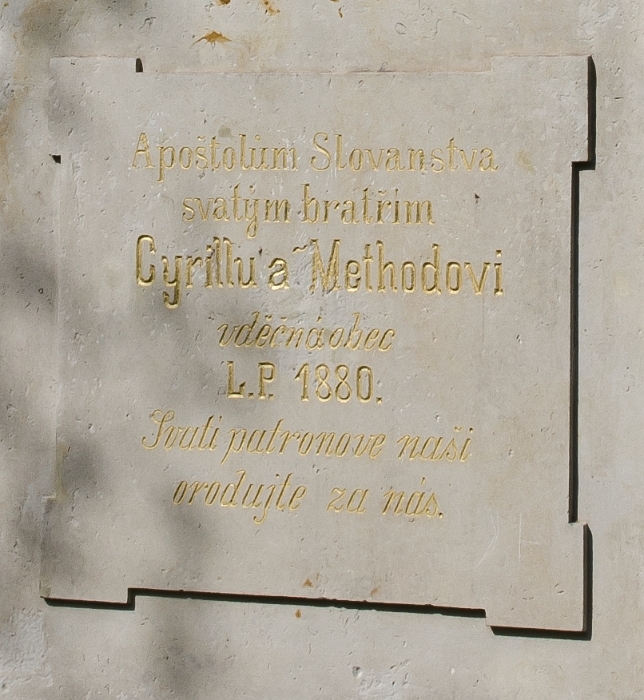 Apoštolům Slovanstva
svatým bratřím
Cyrillu a Methodovi
vděčná obec
L.P. 1880.
Svatí patronove naši
orodujte za nás.